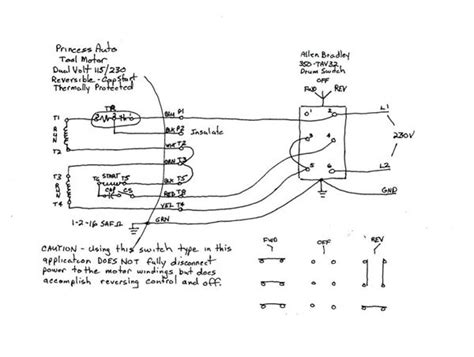 Princess Auto
Tool Motor
Dual Volt 115/230
Reversible - CapStart
Thermally Protected
Allen Bradley
350-TAV32
Drum Switch
OFF
FWD
REV
BLU P1
BLK P2
Insulate
T1
RUN
T2
WHT T2
ORN T3
T3
START
T6
T5
BLK T5
CAP
CS
RED T8
RUN
T4
YEL T4
GRN
1 2
3 4
5 6
L1
230V
L2
GND
1-2-16 SAF Ω
CAUTION - Using this switch type in this
application DOES NOT fully disconnect
power to the motor windings, but does
accomplish reversing control and off.
FWD
OFF
REV